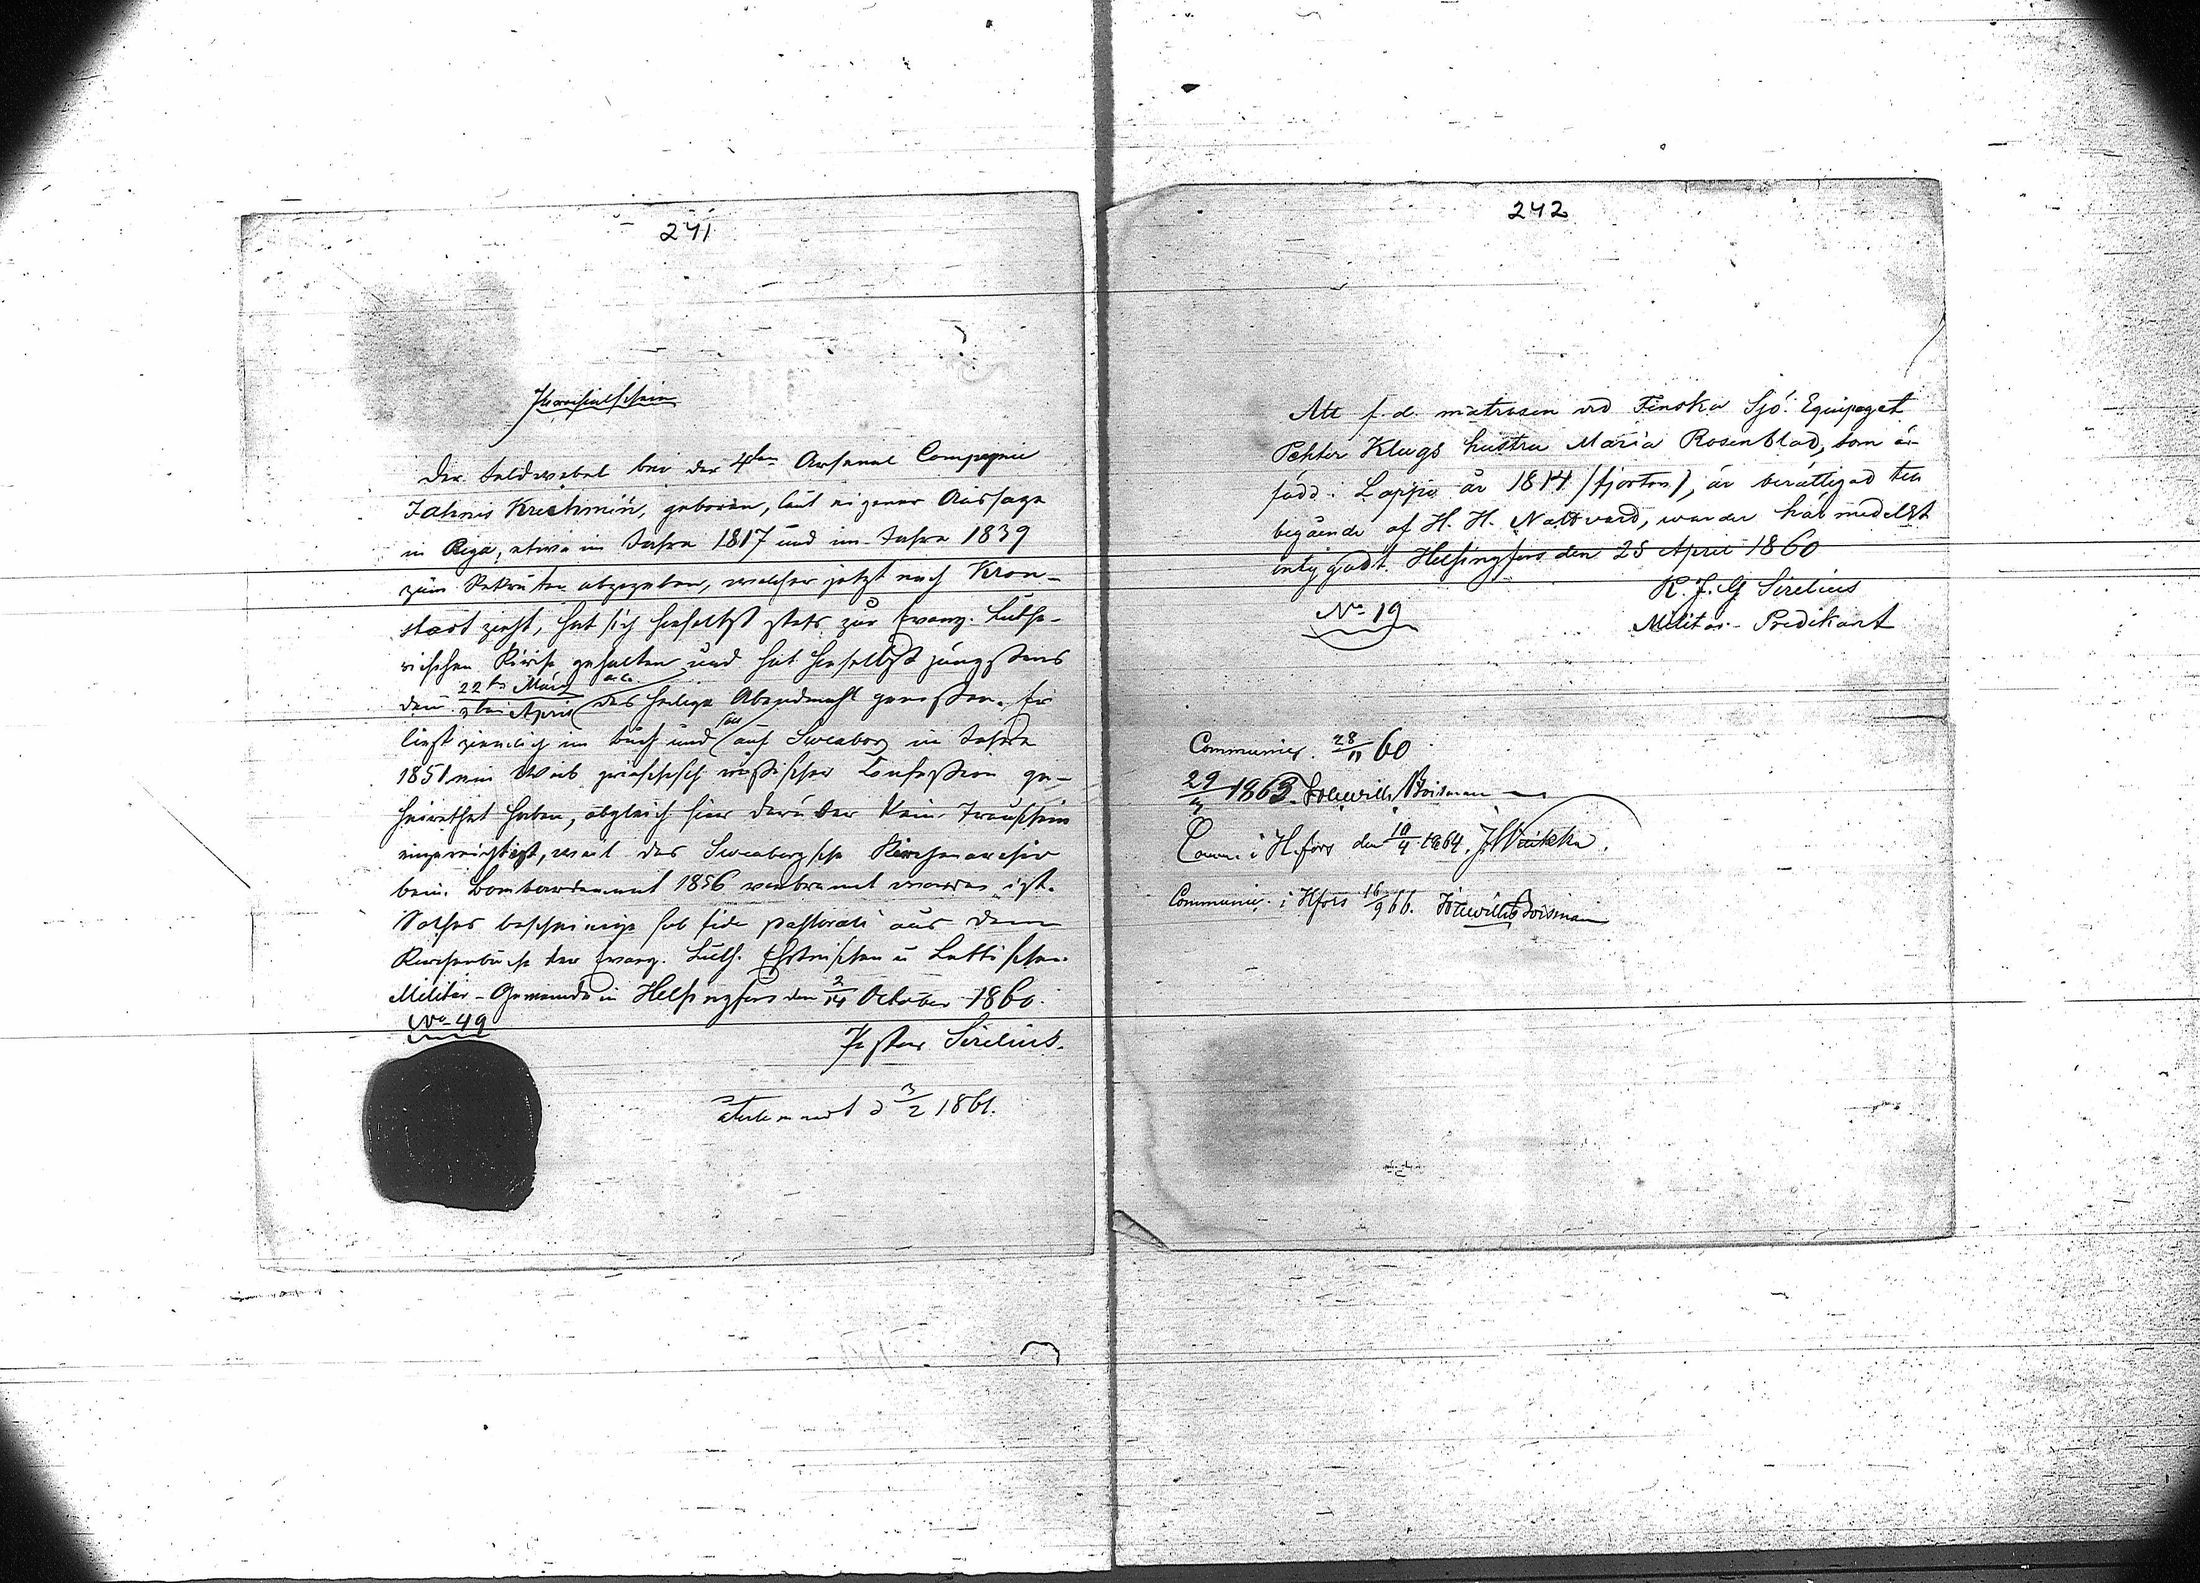 241
Parochialschein
Der Feldwebel bei der 4ten Arsenal Compagnie
Jahnis Kreschmin, geboren, laut eigener Aussage
in Riga, etwa im Jahre 1817 und im Jahre 1839
zum Rekruten abgegeben, welcher jetzt nach Kron-
stadt zieht, hat sich hieselbst stets zur Evang. Luthe-
rischen Kirche gehalten und hat hieselbst jüngstens
den 22ten März a.c.
3ten April das heilige Abendmahl genossen. Er
liest ziemlich im Buch und auf Sweaborg im Jahre
1851 ein Weib griechisch russischer Confession ge-
heirathet haben, obgleich hier darüber kein Trauschein
eingereicht ist, weil das Sweaborgsche Kirchenarchiv
beim Bombardement 1856 verbrannt worden ist.
Solches bescheinige sub fide pastorali aus dem
Kirchenbuche der Evang. Luth. Ehstnischen u Lettischen
Militär-Gemeinde in Helsingfors den 2/14 October 1860.
No 49
Pastor Sirelius.
d 3/2 1861.
242
Att f. d. matrosen vid Finska Sjö Equipaget
Pehter Klugs hustru Maria Rosenblad, som är
född i Lappo år 1814 /fjorton/, är berättigad till
begående af H. H. Nattvard, warder här medelst
intygadt. Helsingfors den 25 April 1860
K. J. G Sirelius
Militär-Predikant
No 19
Communic. 28/11 60
29/3 1863. Boisman
Comm. i H.fors den 10/4 1864.
Communic. i Hfors 16/9 66. Boisman